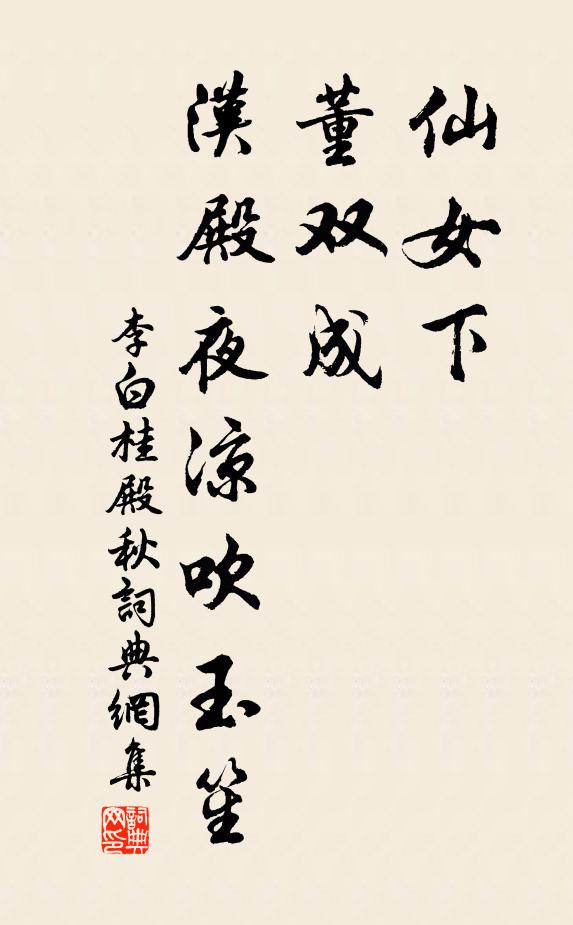 仙女下
董双成
漢殿夜涼吹玉笙
李白桂殿秋詞典網集
詞典网印